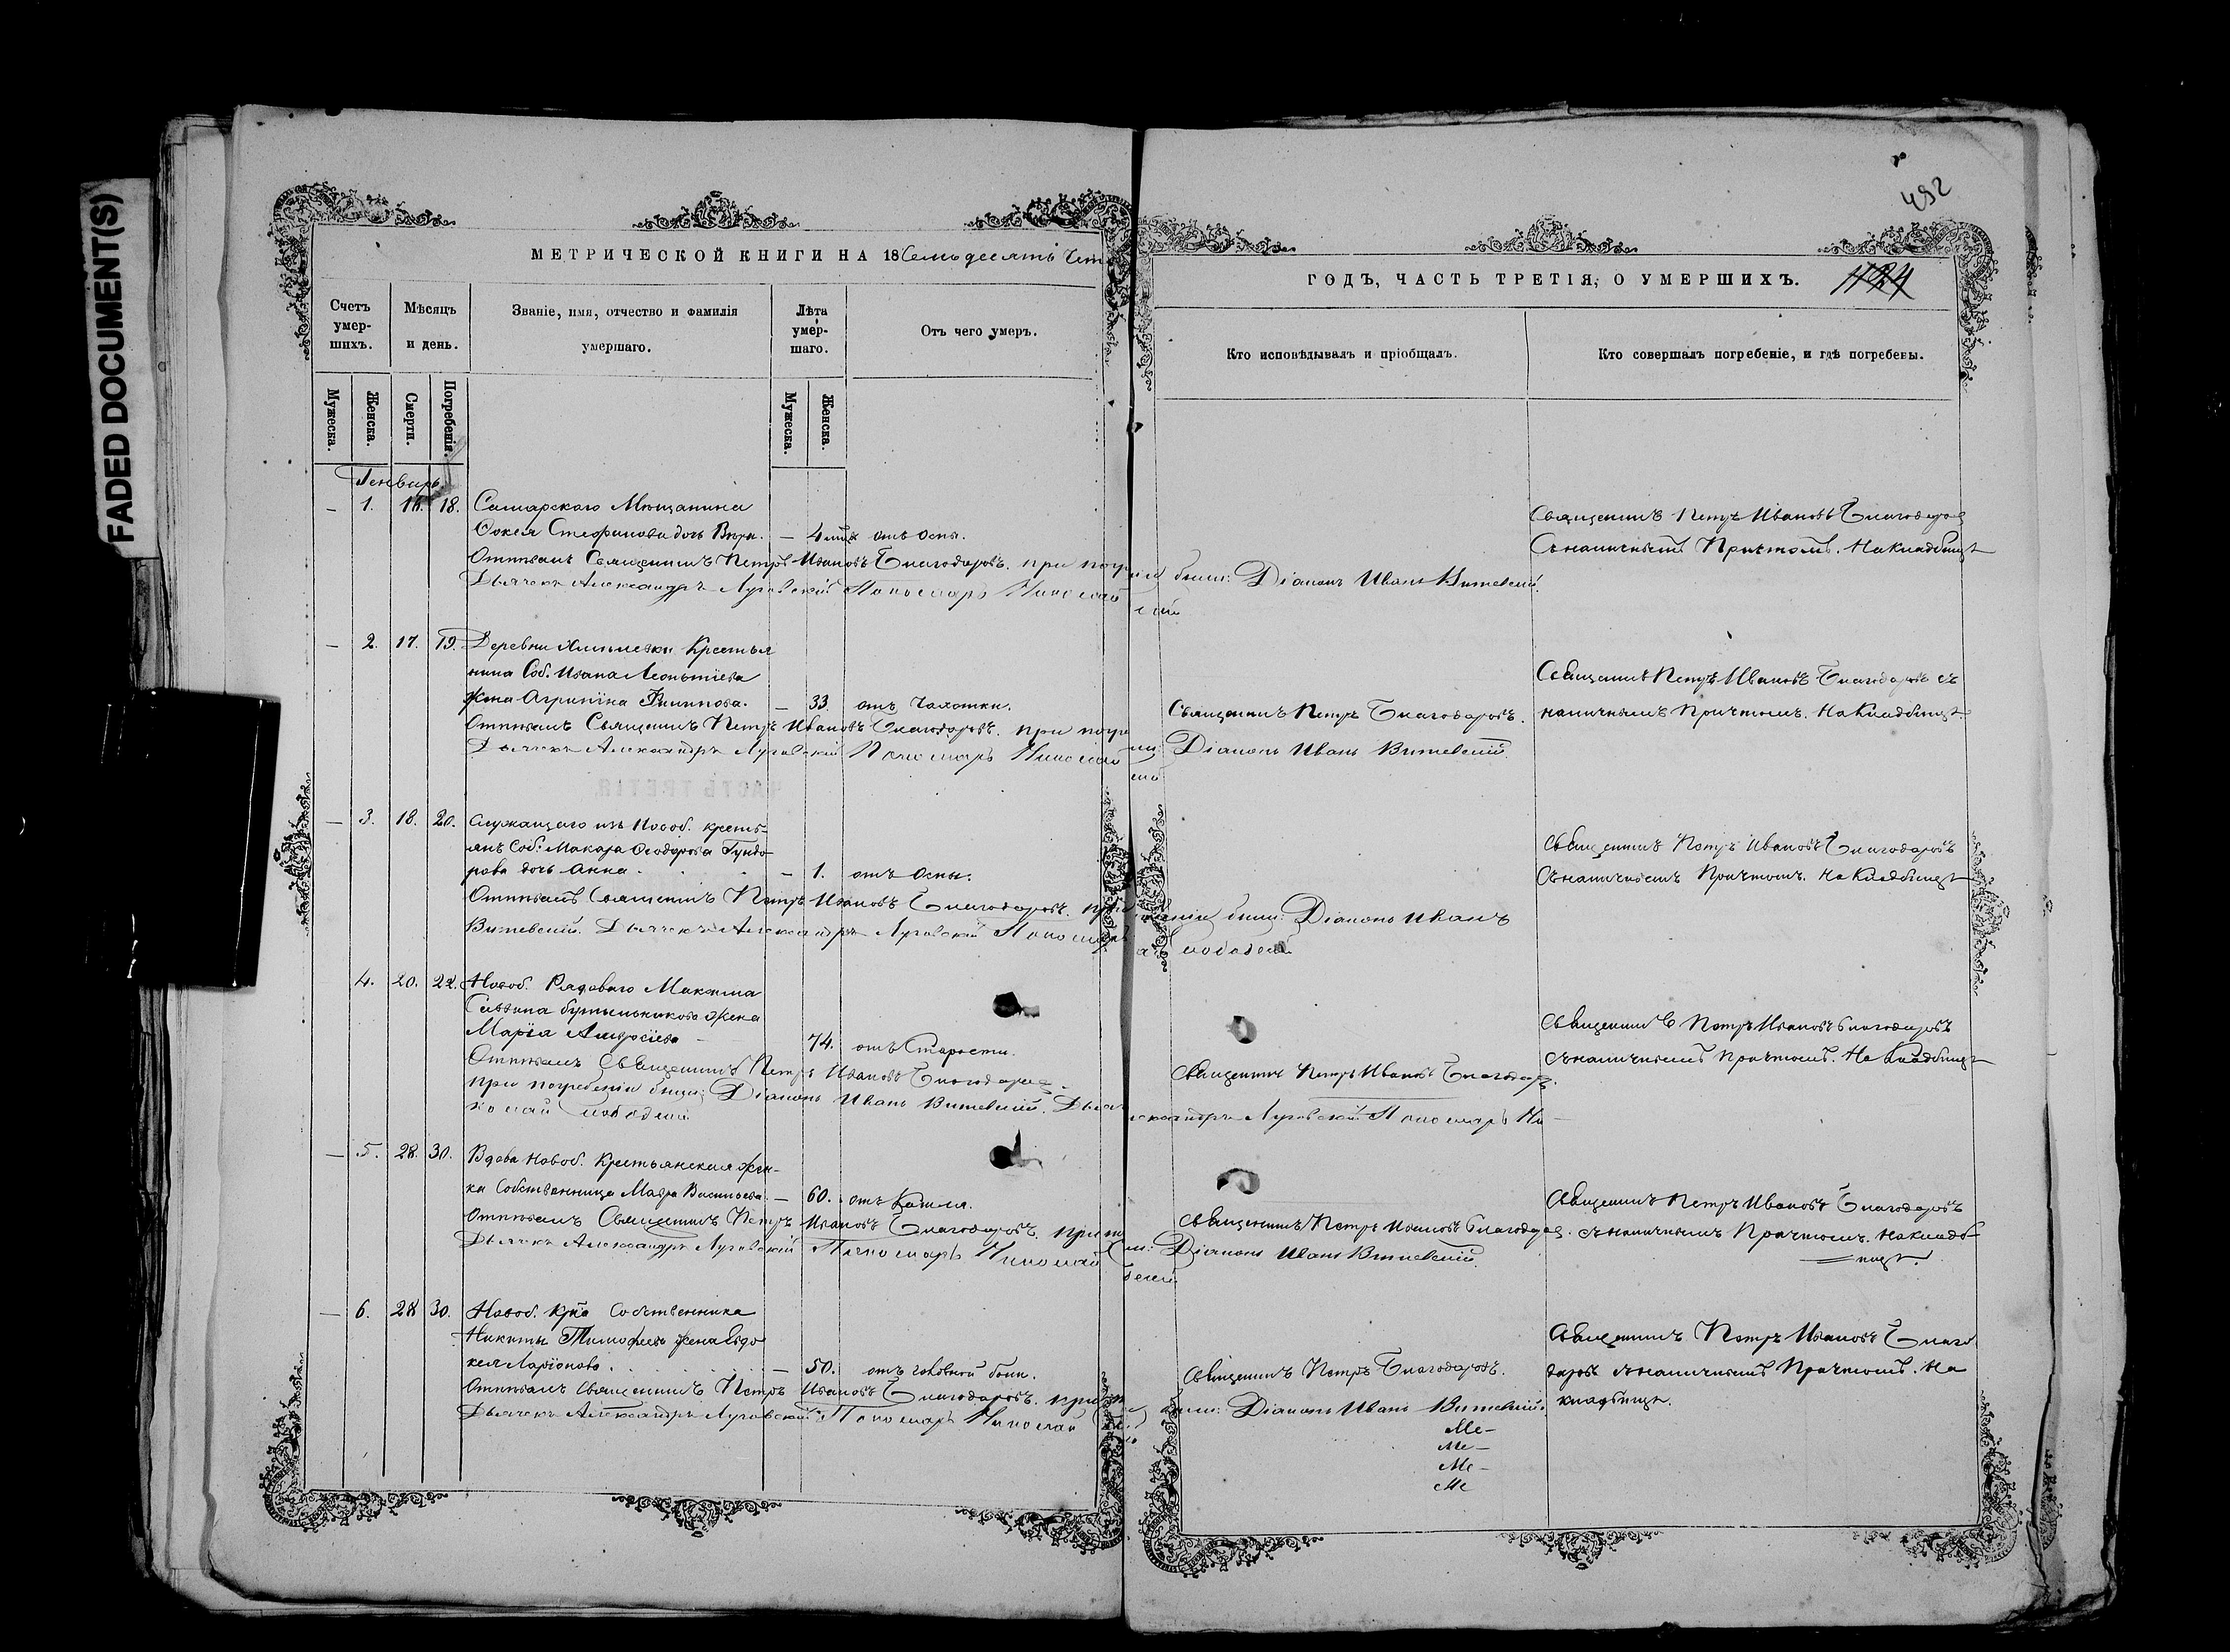 FADED DOCUMENT(S)
МЕТРИЧЕСКОЙ КНИГИ НА 18Семьдесятъ Чет
Счетъ умер-шихъ.
Мѣсяцъ и день.
Званіе, имя, отчество и фамилія умершаго.
Лѣта умер-шаго.
Отъ чего умеръ.
Мужеска.
Женска.
Смерти.
Погребенія.
Мужеска.
Женска.
Генварь.
– 1. 16. 18. Самарскаго Мѣщанина
Фокея Стефанова дочь Вѣра. – 4 отъ оспы.
Отпѣвалъ Священникъ Петръ Ивановъ Благодаровъ. при
Дьячекъ Александръ Луговскій Пономарь Николай
– 2. 17. 19. Деревни Крестья
нина Соб. Ивана Леонтіева
жена Агрипина Филипова. – 33. отъ Чахотки.
Отпѣвалъ Священникъ Петръ Ивановъ Благодаровъ. при
Дьячекъ Александръ Луговскій Пономарь Николай
– 3. 18. 20. Служащаго изъ Новоб. кресть-
янъ Соб: Макара Ѳеодорова Гундо-
рова дочь Анна. – 1. отъ Оспы.
Отпѣвалъ Священникъ Петръ Ивановъ Благодаровъ. при
Витевскій. Дьячекъ Александръ Луговскій Пономарь
4. 20. 22. Новоб. Рядоваго Максима
Савина жена
Марія Амвросіева – 74. отъ Старости.
Отпѣвалъ Священникъ Петръ Ивановъ Благодаровъ.
при погребеніи были: Діаконъ Иванъ Витевскій. Дьяч
колай Слободской
– 5. 28. 30. Вдова Новоб. Крестьянская жен-
ка Собственница Мавра Васильева. – 60. отъ Кашля.
Отпѣвалъ Священникъ Петръ Ивановъ Благодаровъ. при
Дьячекъ Александръ Луговскій Пономарь Николай
– 6. 28 30. Новоб. Собственника
Никиты Тимофеева жена Евдо
кея Ларіонова. – 50. отъ головной боли.
Отпѣвалъ Священникъ Петръ Ивановъ Благодаровъ. при
Дьячекъ Александръ Луговскій Пономарь Николай
492
ГОДЪ, ЧАСТЬ ТРЕТІЯ, О УМЕРШИХЪ.
Кто исповѣдывалъ и пріобщалъ.
Кто совершалъ погребеніе, и гдѣ погребены.
Священникъ Петръ Ивановъ Благодаровъ
Съ наличнымъ Причтомъ. На Кладбищѣ
были: Діаконъ Иванъ Витевскій.
Священникъ Петръ Ивановъ Благодаровъ съ
Священникъ Петръ Благодаровъ. наличнымъ Причтомъ. На Кладбищѣ.
Діаконъ Иванъ Витевскій.
Священникъ Петръ Ивановъ Благодаровъ
Съ наличнымъ Причтомъ. На Кладбищѣ
были: Діаконъ Иванъ
Священникъ Петръ Ивановъ Благодаровъ
съ наличнымъ Причтомъ. На Кладбищѣ
Священникъ Петръ Ивановъ Благодаров.
ександръ Луговскій Пономарь Ни-
Священникъ Петръ Ивановъ Благодаровъ
Священникъ Петръ Ивановъ Благодаров. съ наличнымъ Причтомъ. На кладб
ищѣ.
Діаконъ Иванъ Витевскій.
Священникъ Петръ Ивановъ Благо
Священникъ Петръ Благодаровъ. даровъ съ наличнымъ Причтомъ. На
кладбищѣ.
были: Діаконъ Иванъ Витевскій.
Ме-
Ме-
Ме-
Ме